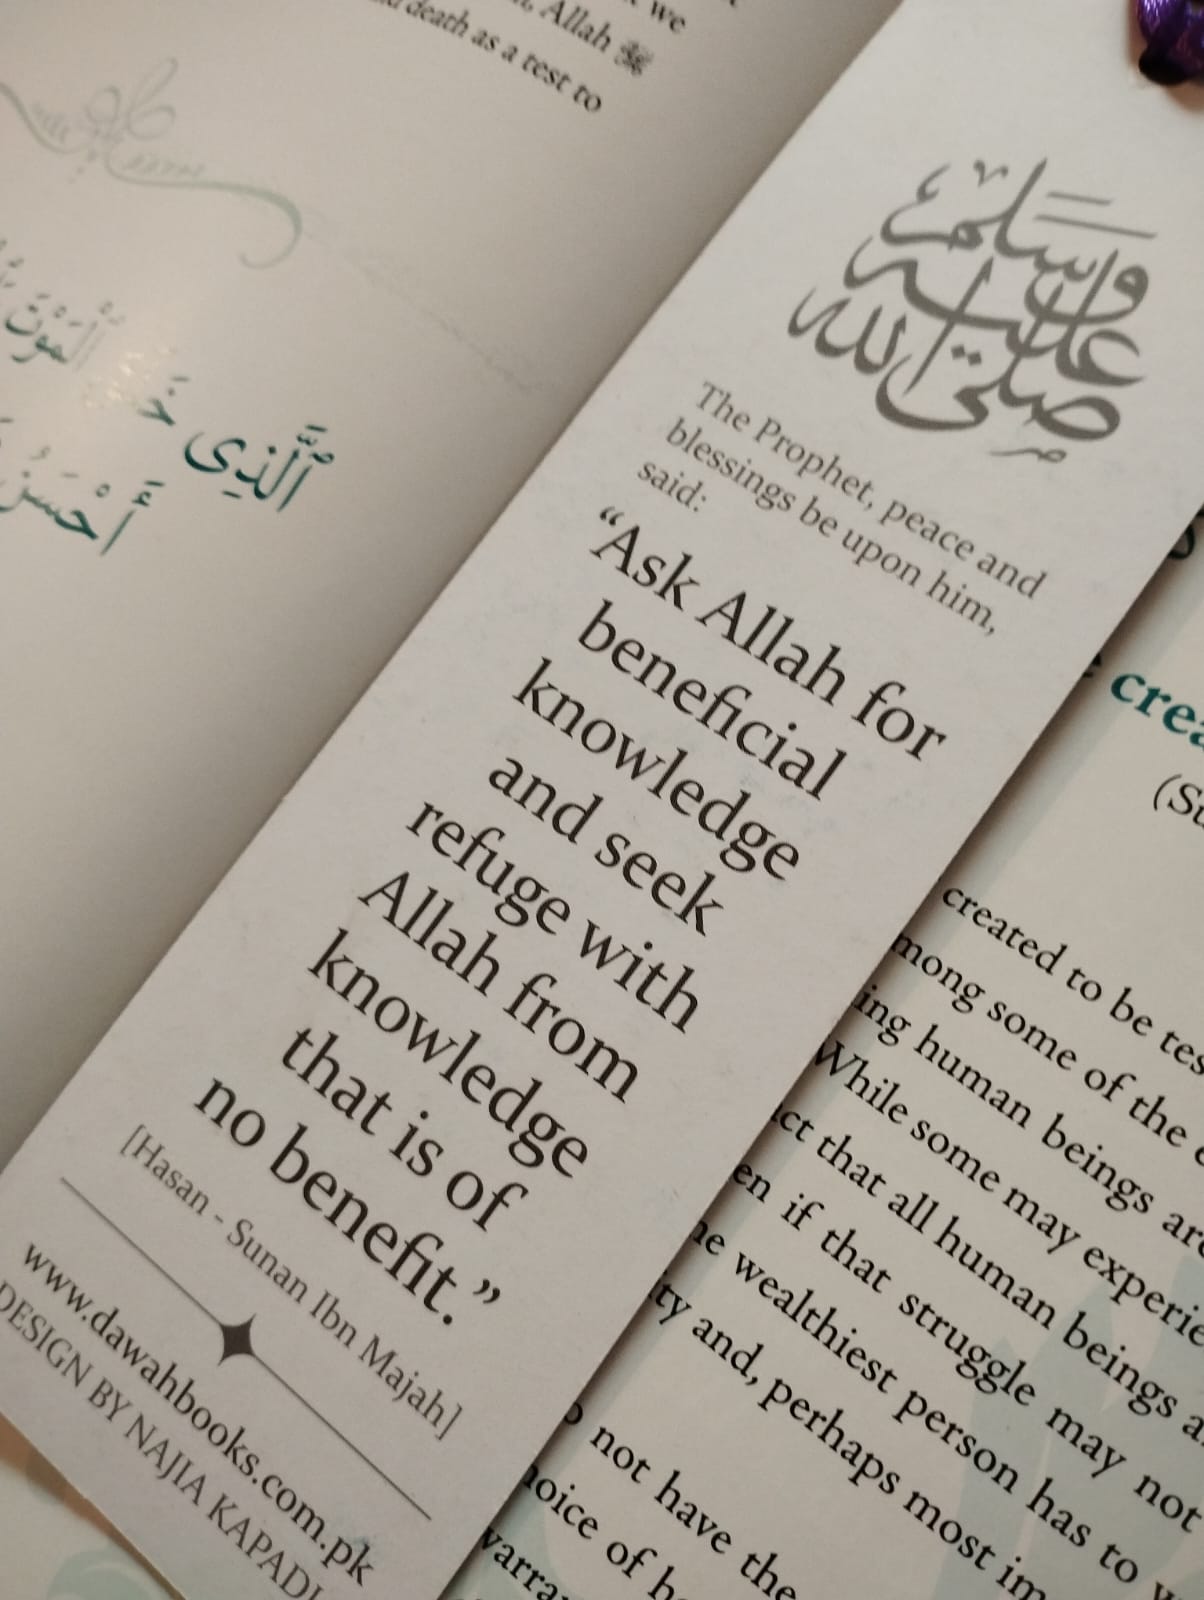 we
Allah ﷻ
death as a test to
ٱلْمَوْتَ
ٱلَّذِى
أَحْسَنُ
صلى الله
عليه
وسلم
The Prophet, peace and
blessings be upon him,
said:
“Ask Allah for
beneficial
knowledge
and seek
refuge with
Allah from
knowledge
that is of
no benefit.”
[Hasan - Sunan Ibn Majah]
www.dawahbooks.com.pk
DESIGN BY NAJIA KAPADI
created to be
some of the
human beings
While some may
that all human beings
if that struggle may not
wealthiest person has to
and, perhaps most
not have the
of